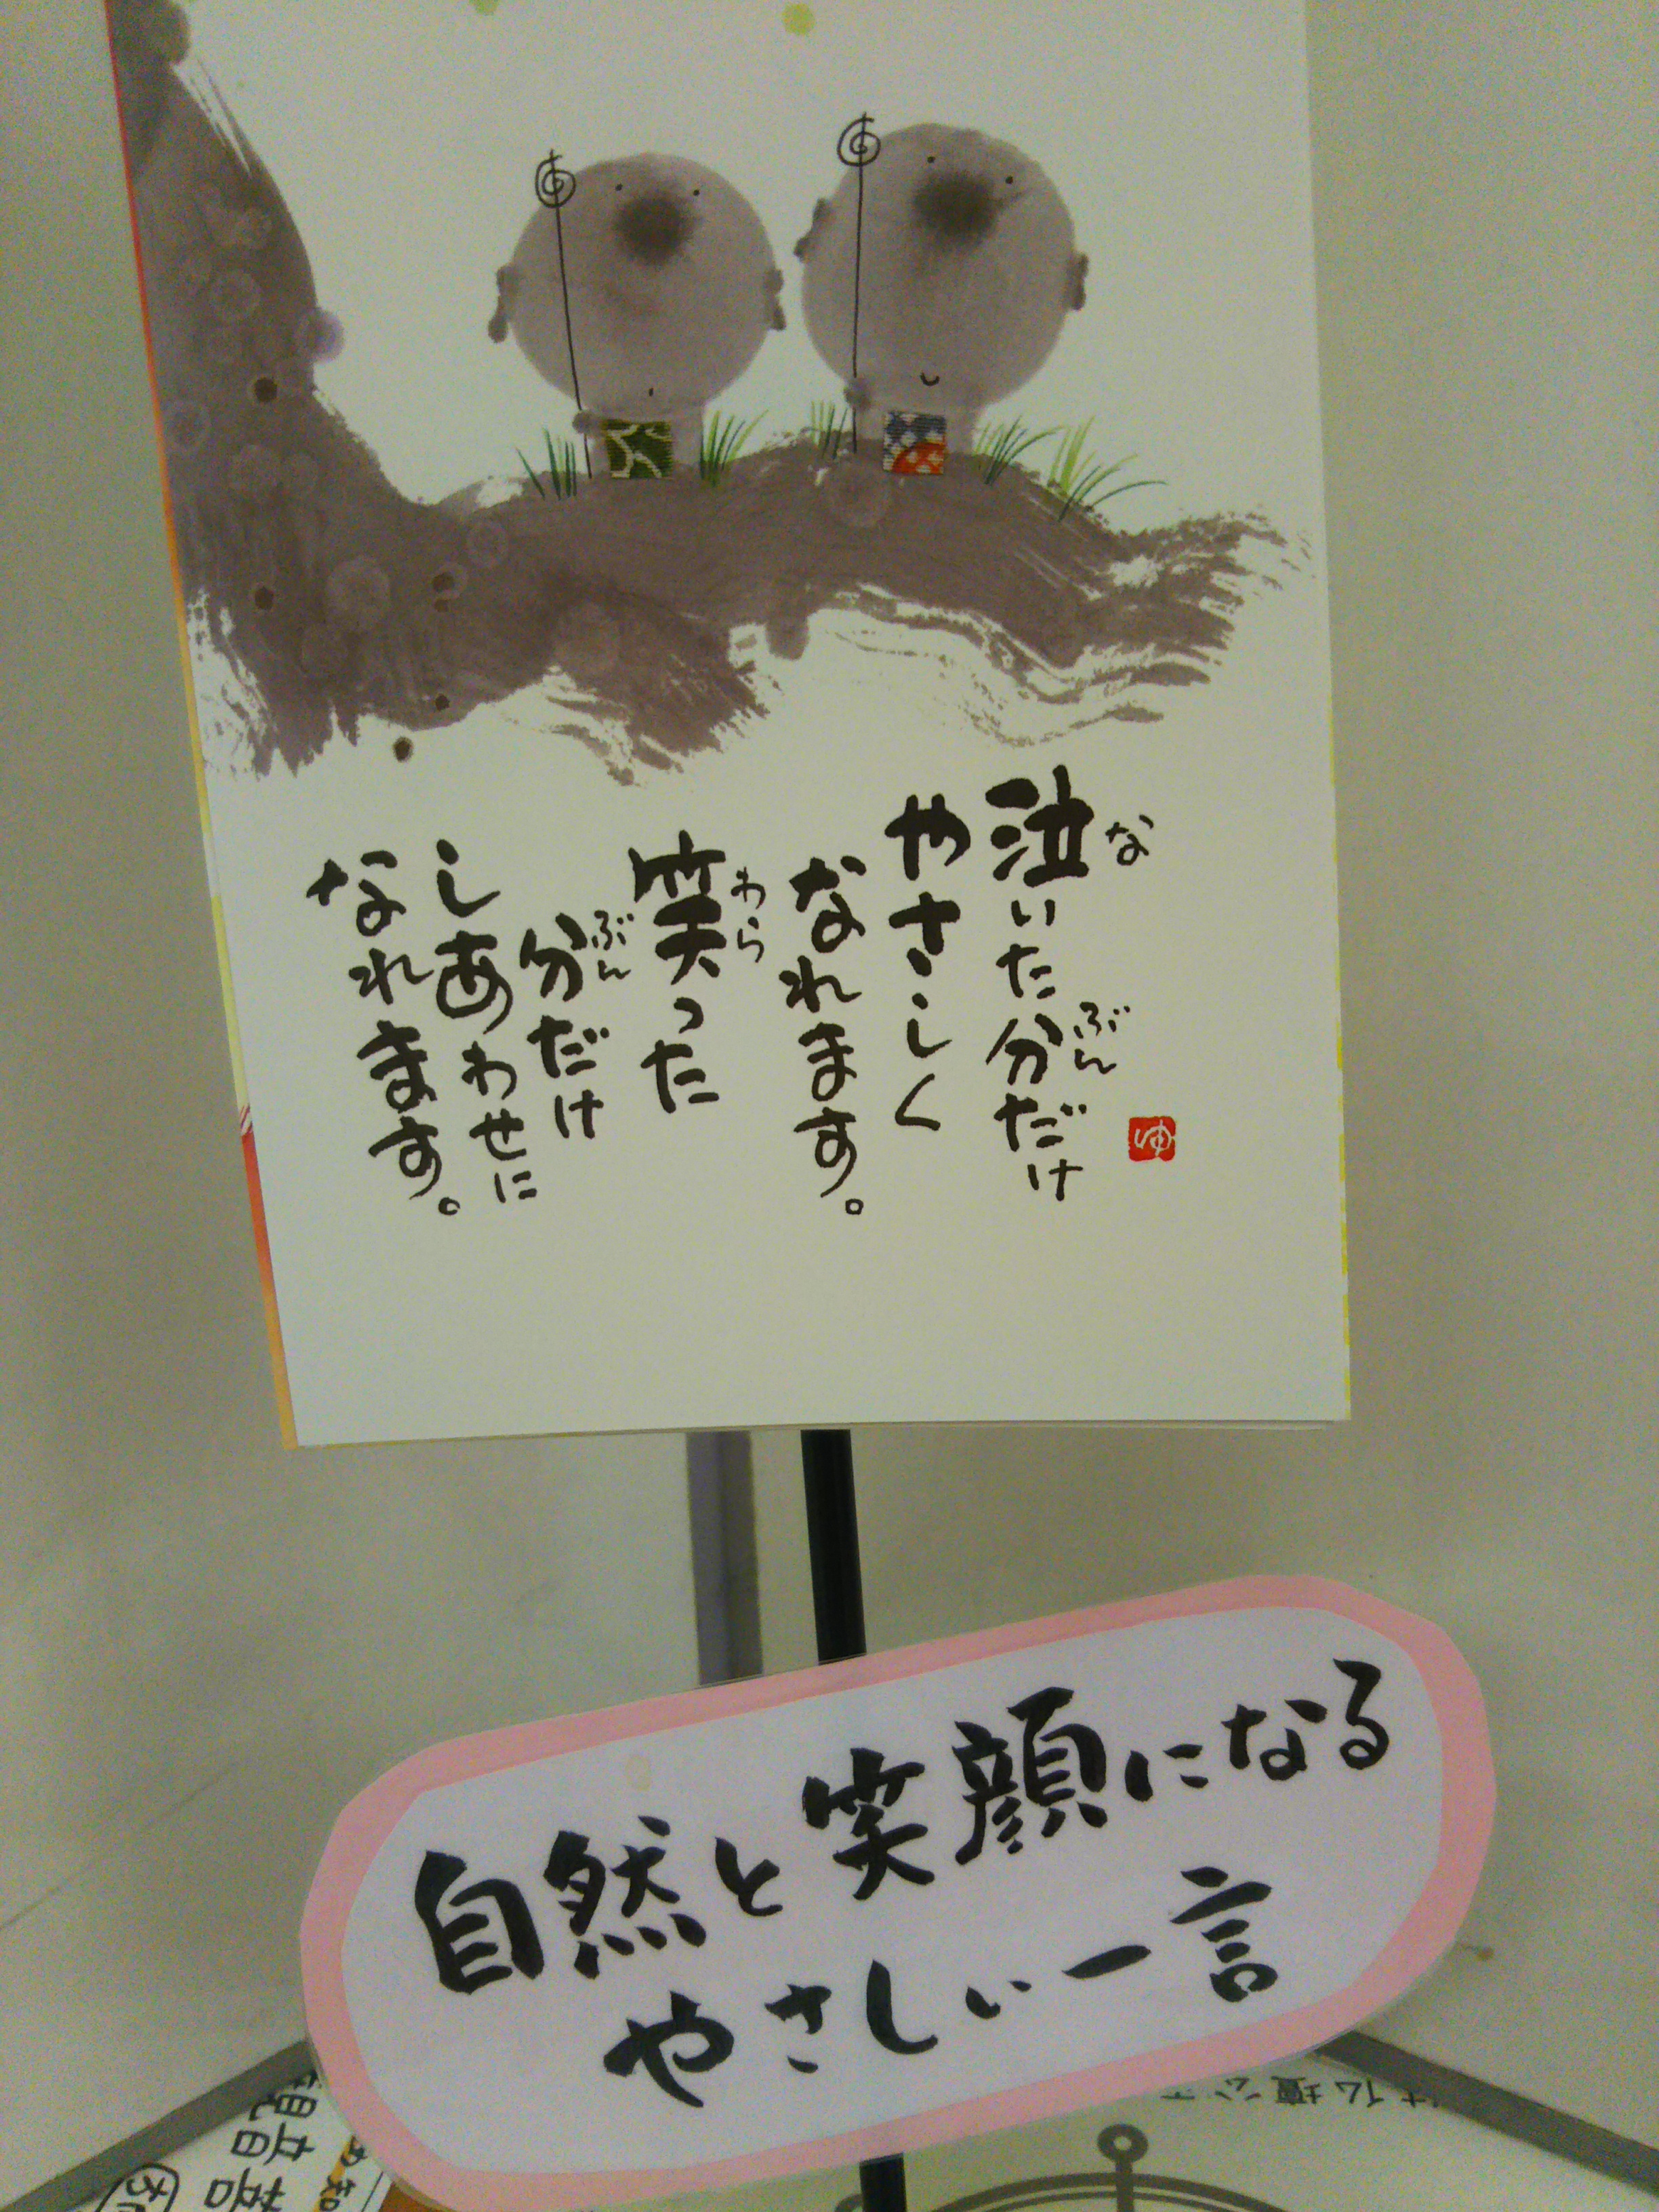 泣いた分だけ
やさしく
なれます。
笑った
分だけ
しあわせに
なれます。
な
ぶん
わら
ぶん
ゆ
自然と笑顔になる
やさしい一言
観音菩